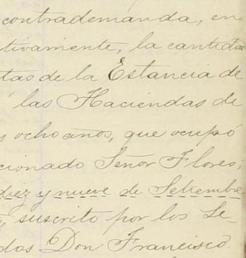 contrademanda, en
tivamente, la cantidad
tas de la Estancia de
las Haciendas de
s ocho años, que ocupó
cionado Señor Flores,
diez y nueve de Setiembre
suscrito por los Se-
dos Don Francisco